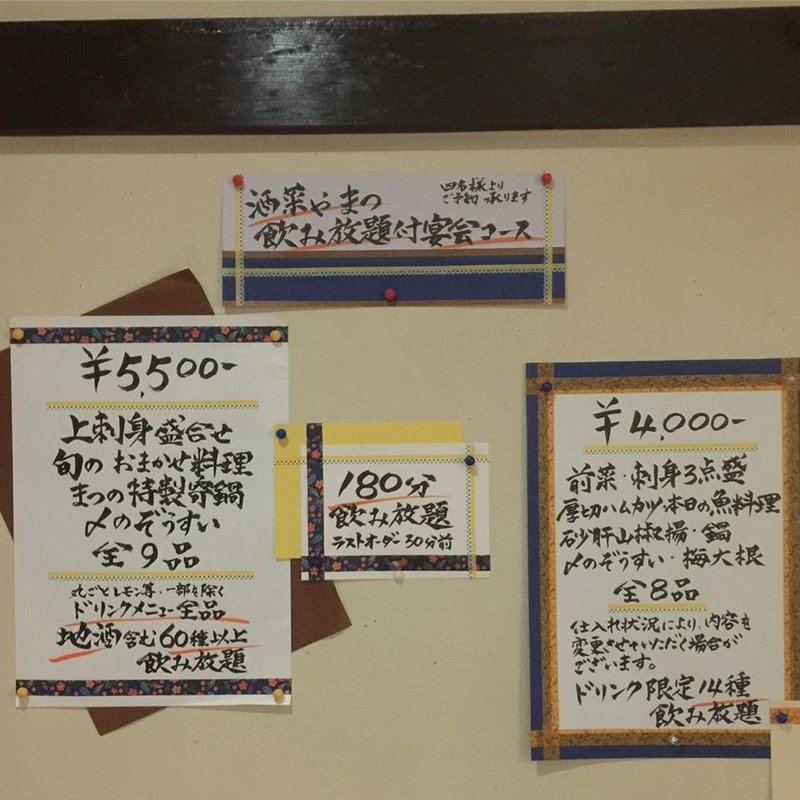 酒菜やまつ
四名様より
ご予約 承ります
飲み放題付宴会コース
¥5,500-
上刺身盛合せ
旬のおまかせ料理
まつの特製寄鍋
〆のぞうすい
全9品
丸ごとレモン等・一部を除く
ドリンクメニュー全品
地酒含む60種以上
飲み放題
180分
飲み放題
ラストオーダー30分前
¥4,000-
前菜・刺身3点盛
厚切ハムカツ・本日の魚料理
砂肝山椒揚・鍋
〆のぞうすい・梅大根
全8品
仕入れ状況により、内容を
変更させていただく場合が
ございます。
ドリンク限定14種
飲み放題